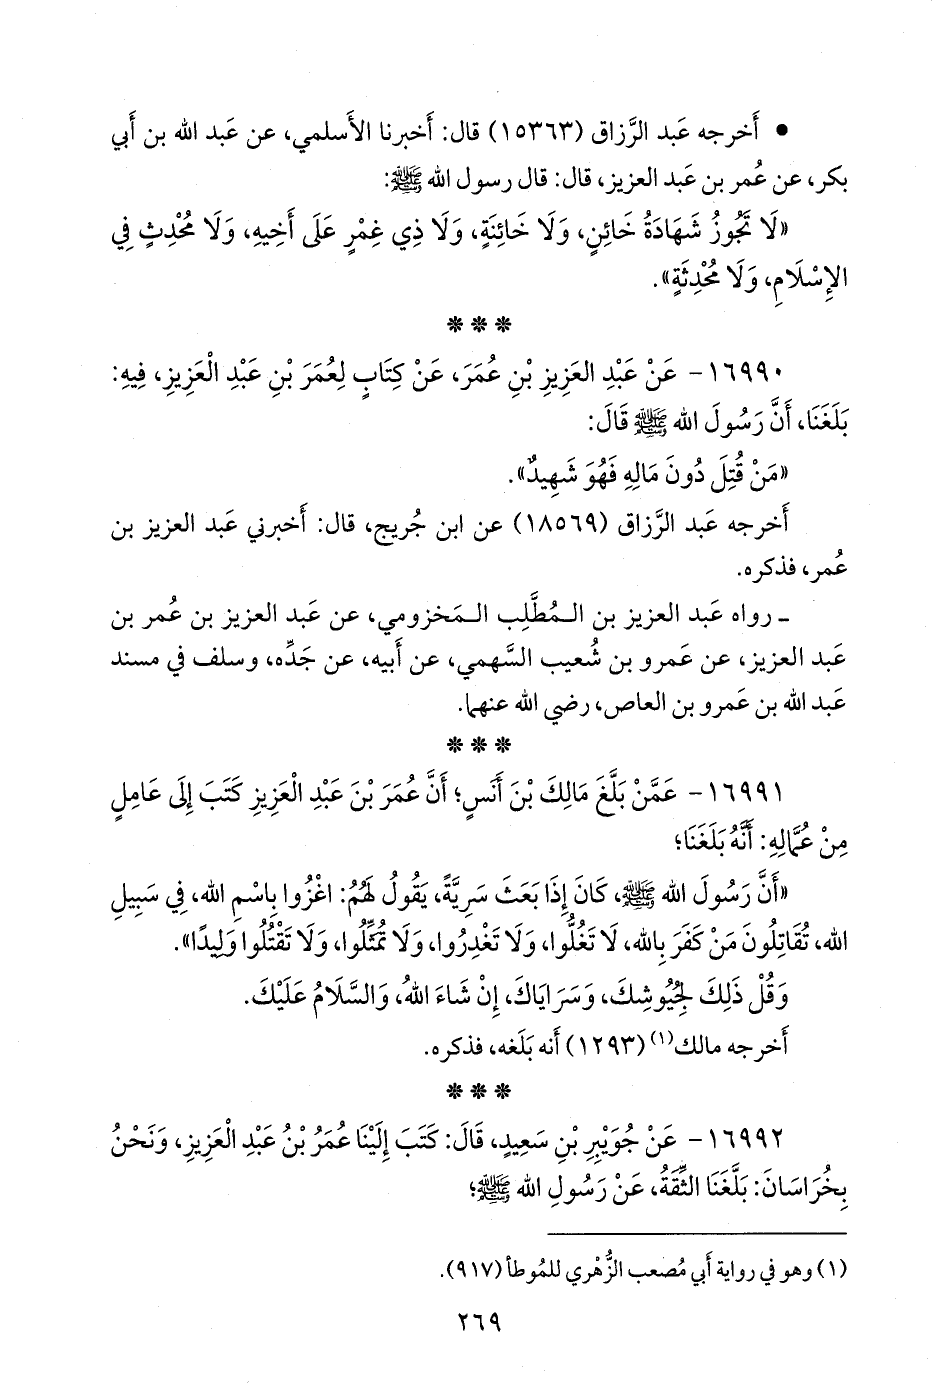 • أَخرجه عَبد الرَّزاق (١٥٣٦٣) قال: أَخبرنا الأَسلمي، عن عَبد الله بن أَبي
بكر، عن عُمر بن عَبد العزيز، قال: قال رسول الله ﷺ:
«لَا تَجُوزُ شَهَادَةُ خَائِنٍ، وَلَا خَائِنَةٍ، وَلَا ذِي غِمْرٍ عَلَى أَخِيهِ، وَلَا مُحْدِثٍ فِي
الإِسْلَامِ، وَلَا مُحْدِثَةٍ».
* * *
١٦٩٩٠- عَنْ عَبْدِ العَزِيزِ بْنِ عُمَرَ، عَنْ كِتَابٍ لِعُمَرَ بْنِ عَبْدِ الْعَزِيزِ، فِيهِ:
بَلَغَنَا، أَنَّ رَسُولَ الله ﷺ قَالَ:
«مَنْ قُتِلَ دُونَ مَالِهِ فَهُوَ شَهِيدٌ».
أَخرجه عَبد الرَّزاق (١٨٥٦٩) عن ابن جُريج، قال: أَخبرني عَبد العزيز بن
عُمر، فذكره.
ـ رواه عَبد العزيز بن الـمُطَّلِب الـمَخزومي، عن عَبد العزيز بن عُمر بن
عَبد العزيز، عن عَمرو بن شُعيب السَّهمي، عن أَبيه، عن جَدِّه، وسلف في مسند
عَبد الله بن عَمرو بن العاص، رضي الله عنهما.
* * *
١٦٩٩١- عَمَّنْ بَلَّغَ مَالِكَ بْنَ أَنَسٍ؛ أَنَّ عُمَرَ بْنَ عَبْدِ الْعَزِيزِ كَتَبَ إِلَى عَامِلٍ
مِنْ عُمَّالِهِ: أَنَّهُ بَلَغَنَا؛
«أَنَّ رَسُولَ الله ﷺ، كَانَ إِذَا بَعَثَ سَرِيَّةً، يَقُولُ لَهُمُ: اغْزُوا بِاسْمِ الله، فِي سَبِيلِ
الله، تُقَاتِلُونَ مَنْ كَفَرَ بِالله، لَا تَغُلُّوا، وَلَا تَغْدِرُوا، وَلَا تُمَثِّلُوا، وَلَا تَقْتُلُوا وَلِيدًا».
وَقُلْ ذَلِكَ لِجُيُوشِكَ، وَسَرَايَاكَ، إِنْ شَاءَ اللهُ، وَالسَّلَامُ عَلَيْكَ.
أَخرجه مالك(١) (١٢٩٣) أَنه بَلَغه، فذكره.
* * *
١٦٩٩٢- عَنْ جُوَيْبِرِ بْنِ سَعِيدٍ، قَالَ: كَتَبَ إِلَيْنَا عُمَرُ بْنُ عَبْدِ الْعَزِيزِ، وَنَحْنُ
بِخُرَاسَانَ: بَلَّغَنَا الثِّقَةُ، عَنْ رَسُولِ الله ﷺ؛
(١) وهو في رواية أَبي مُصعب الزُّهْري للمُوطأ (٩١٧).
٢٦٩